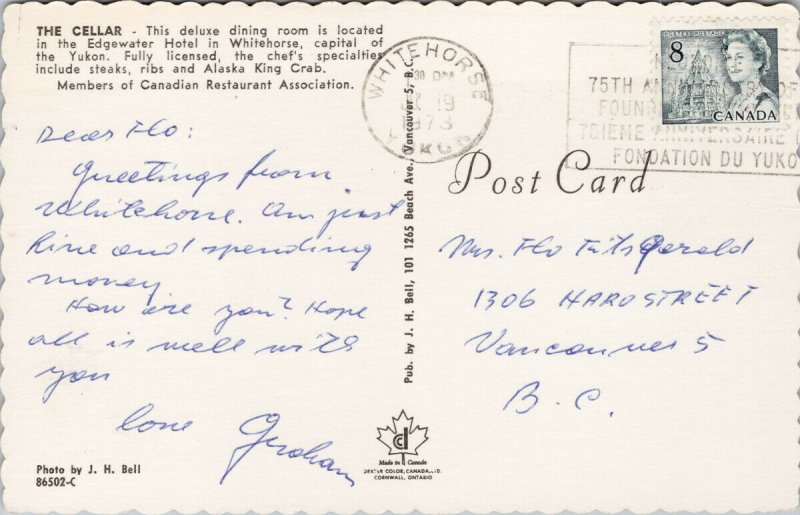 THE CELLAR - This deluxe dining room is located
in the Edgewater Hotel in Whitehorse, capital of
the Yukon. Fully licensed, the chef's specialties
include steaks, ribs and Alaska King Crab.
Members of Canadian Restaurant Association.
Dear Flo:
Greetings from
Whitehorse. Am just
fine and spending
money
How are you? Hope
all is well with
you
love Graham
Photo by J. H. Bell
86502-C
Pub. by J. H. Bell, 101 1265 Beach Ave., Vancouver 5, B.C.
Made in Canada
DEXTER COLOR, CANADA, LTD.
CORNWALL, ONTARIO
WHITEHORSE
19
1973
POSTES POSTAGE
8
CANADA
75TH
FOUN
75IÈME ANNIVERSAIRE
FONDATION DU YUKO
Post Card
Mrs. Flo Fitsgerald
1306 HARO STREET
Vancouver 5
B. C.